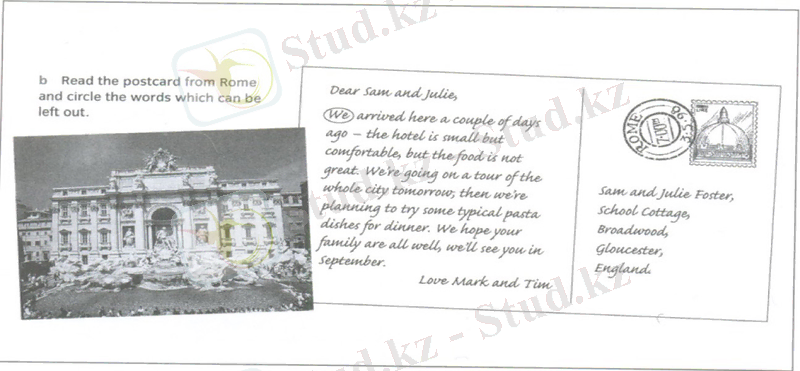 Stud.kz
b Read the postcard from Rome
and circle the words which can be
left out.
Dear Sam and Julie,
We arrived here a couple of days
ago – the hotel is small but
comfortable, but the food is not
great. We're going on a tour of the
whole city tomorrow; then we're
planning to try some typical pasta
dishes for dinner. We hope your
family are all well, we'll see you in
September.
Love Mark and Tim
ROME
7:00PM
Sam and Julie Foster,
School Cottage,
Broadwood,
Gloucester,
England.
Stud.kz - Stud.kz
Stud.kz - Stud.kz